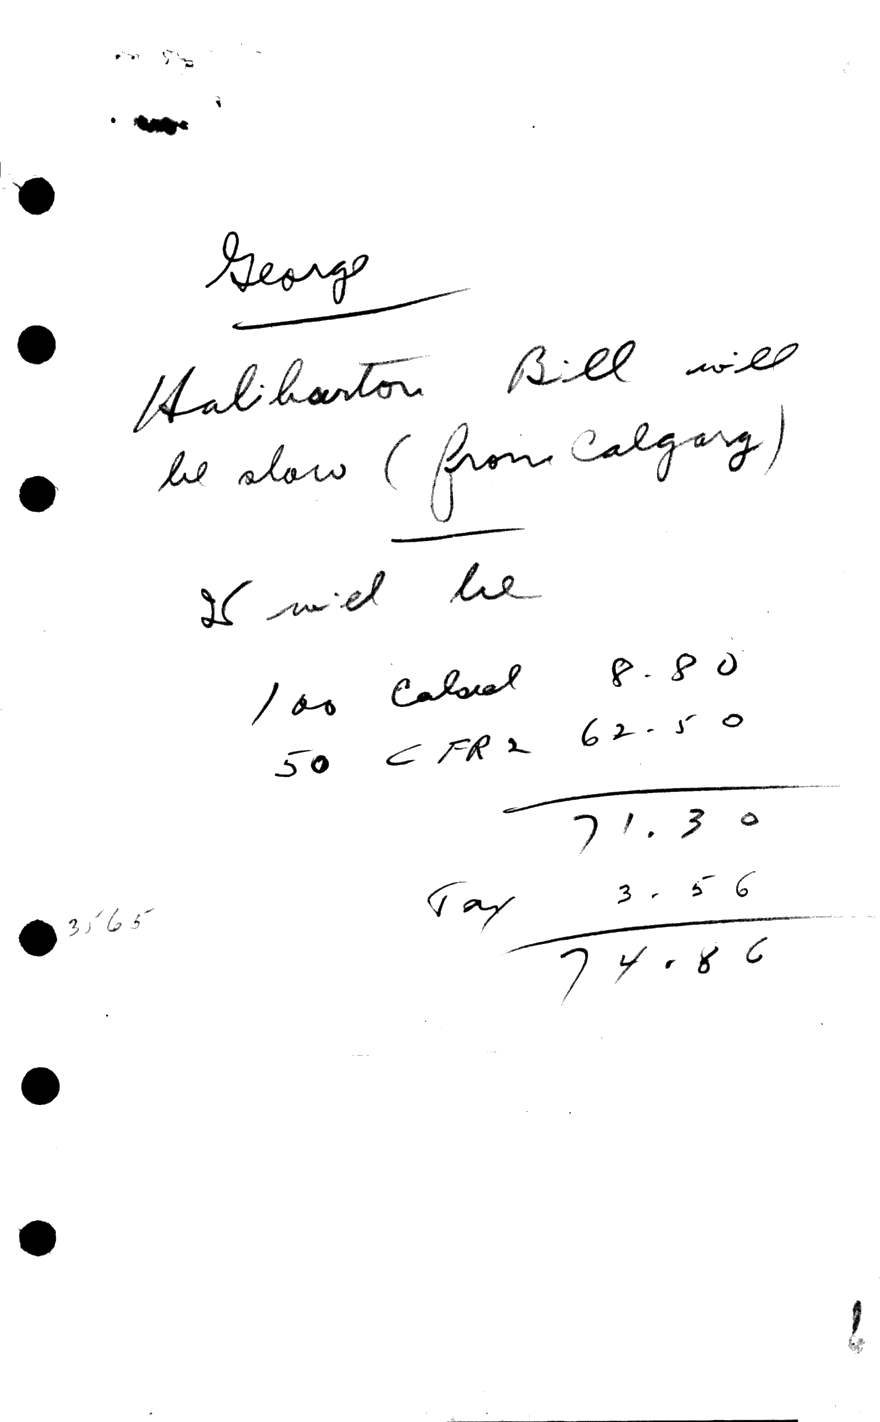 George
Haliburton Bill will
be slow (from Calgary)
It will be
100 Calseal 8.80
50 CFR2 62.50
71.30
Tax 3.56
3565
74.86